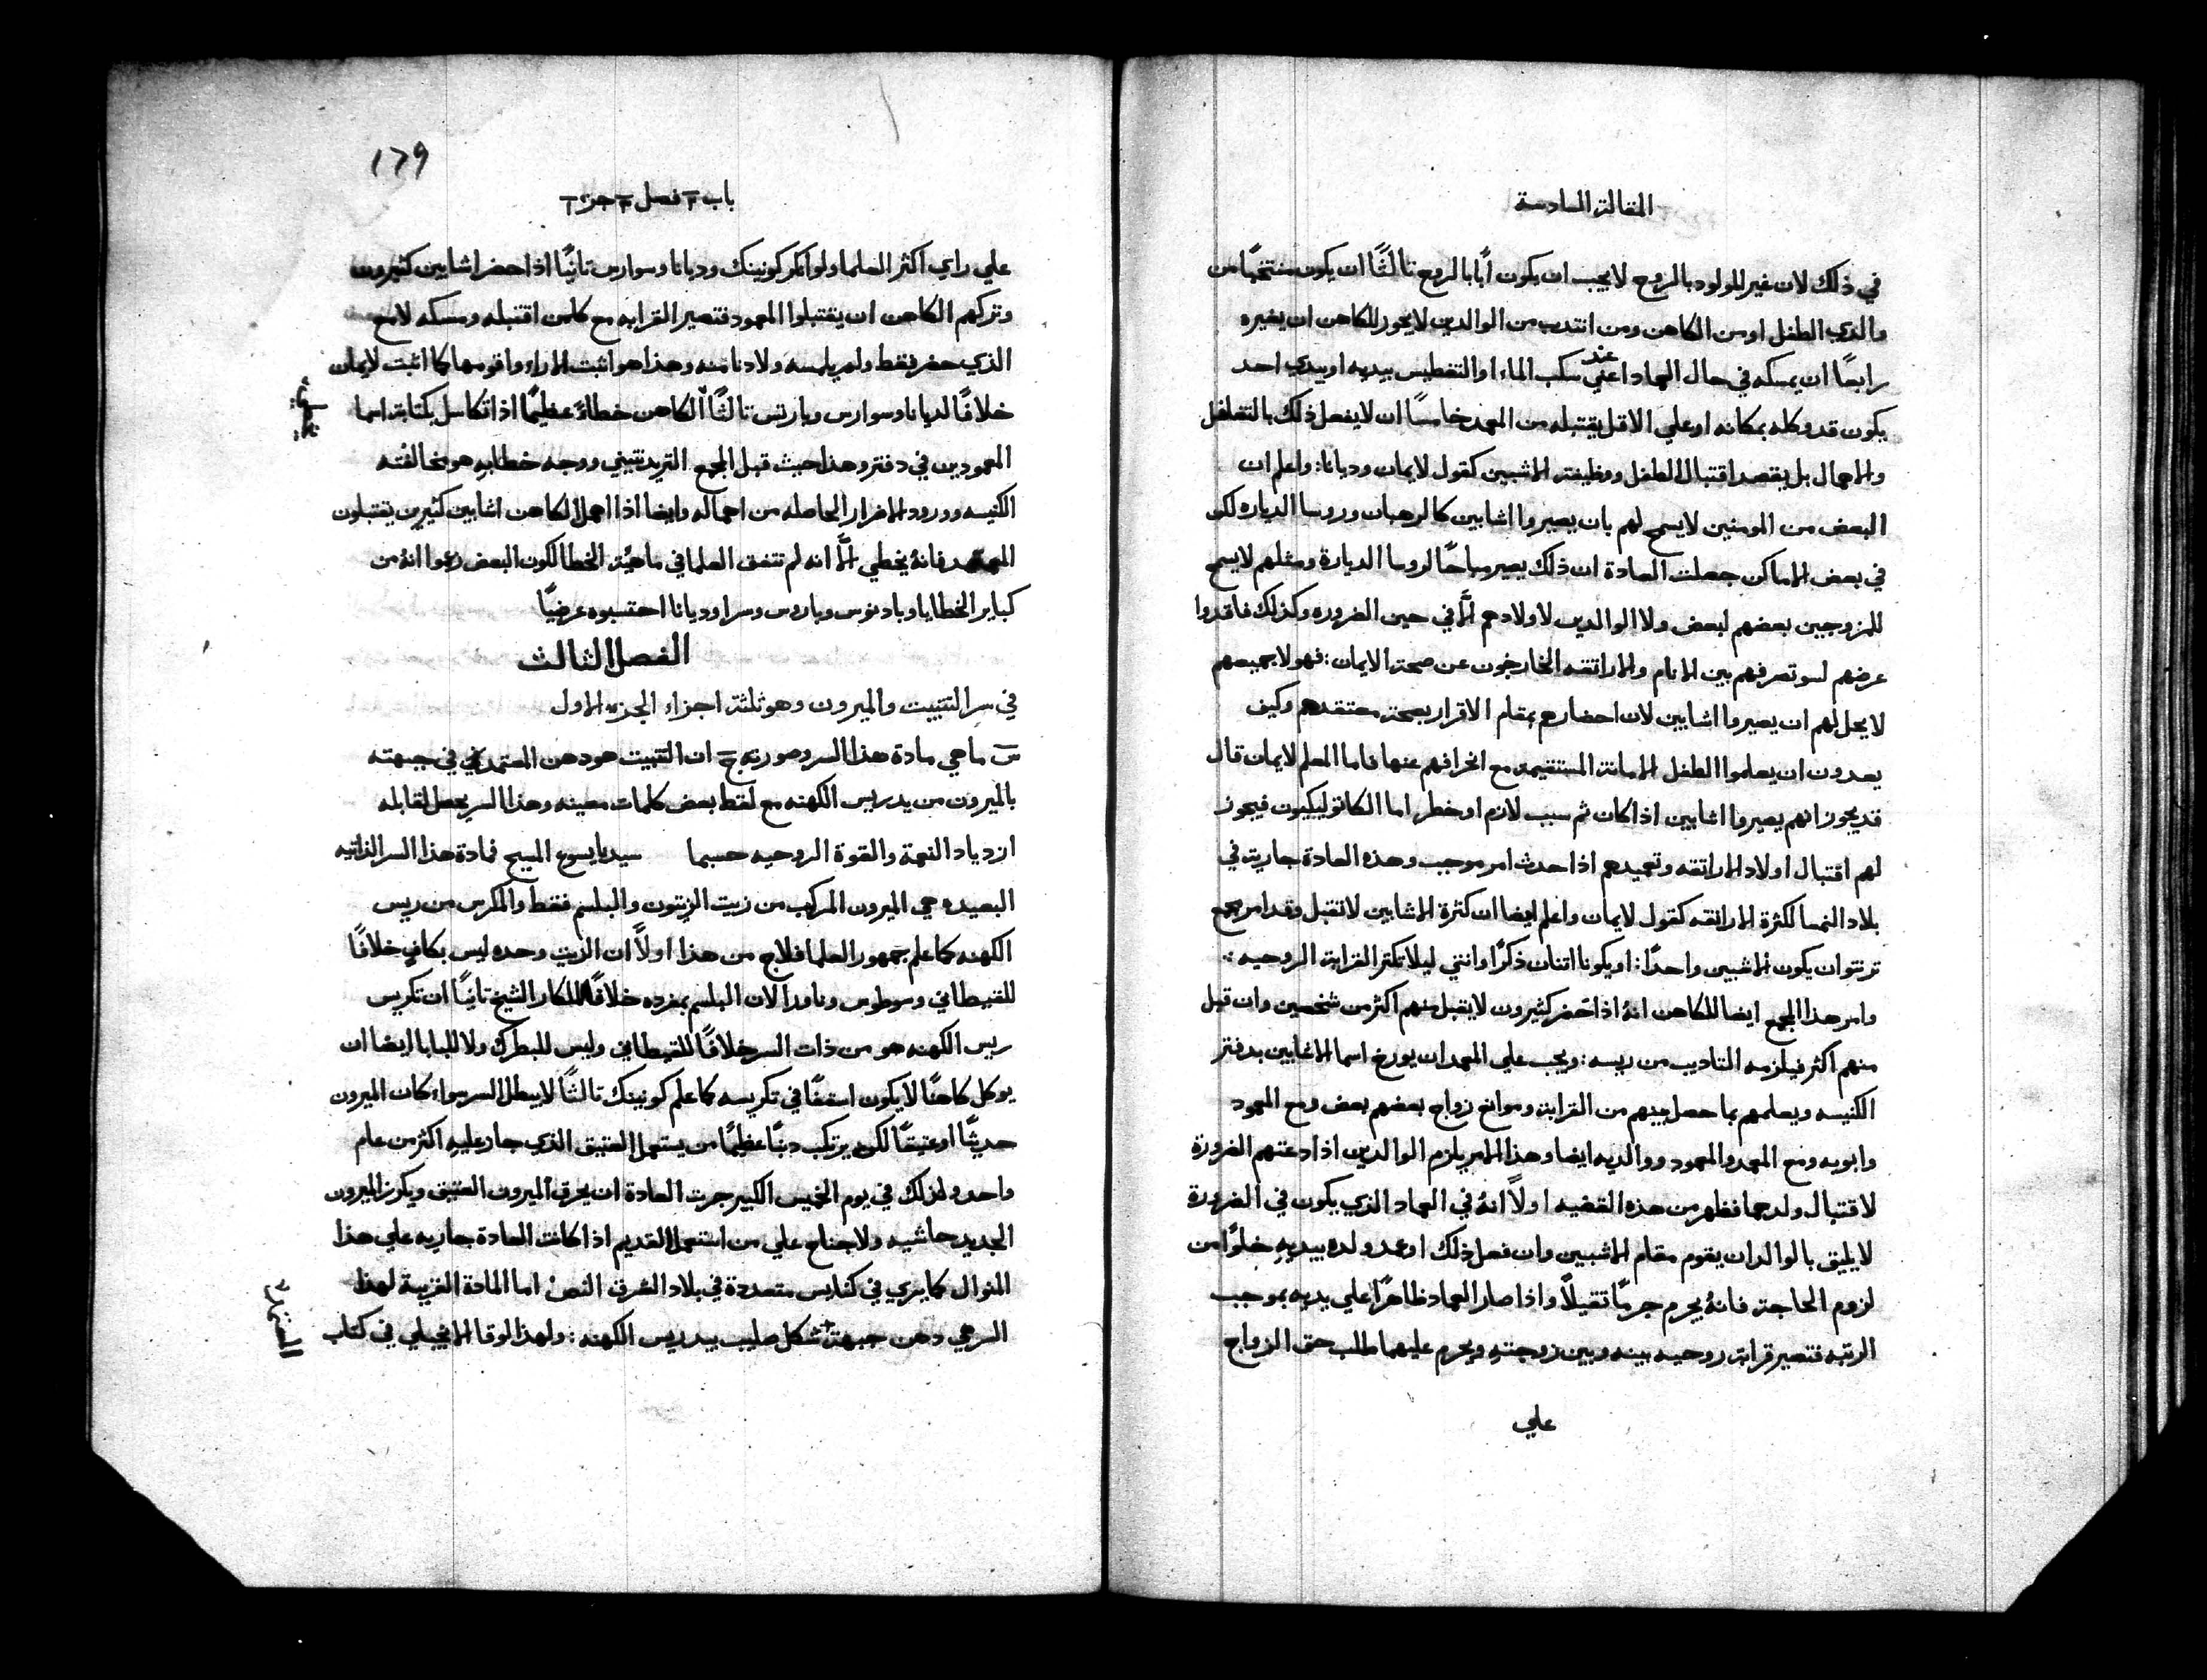 المقالة السادسة
في ذلك لان غير المولود بالروح لا يجب ان يكون ابًا بالروح تالثًا ان يكون منتخبًا من
والدي الطفل او من الكاهن ومن انتدب من الوالدين لا يجوز للكاهن ان يغيره
رابعًا ان يمسكه في حال العماد اعني عند سكب الماء او التغطيس بيديه او بيدي احد
يكون قد وكله بمكانه او علي الاقل يقتبله من المعمد خامسًا ان لا يفعل ذلك بالتغافل
والاهمال بل بقصد اقتبال الطفل ووظيفة الاشبين كقول لايمان وديانا: واعلم ان
البعض من المومنين لا يسمح لهم بان يصيروا اشابين كالرهبان وروسا الدياره لكن
في بعض الاماكن جعلت العادة ان ذلك يصير مباحًا لروسا الديارة ومثلهم لا يسمح
للمزوجين بعضهم لبعض ولا الوالدين لاولادهم الَّا في حين الضروره وكذلك فاقدوا
عرضهم لسو تصرفهم بين الانام والاراتقه الخارجون عن صحة الايمان: فهولا جميعهم
لا يحل لهم ان يصيروا اشابين لان احضارهم بمقام الاقرار بصحة معتقدهم وكيف
يعدون ان يعلموا الطفل الامانة المستقيمه مع انحرافهم عنها فاما المعلم لايمان قال
قد يجوز انهم يصيروا اشابين اذا كان ثم سبب لازم او خطر اما الكاتوليكيون فيجوز
لهم اقتبال اولاد الاراتقه وتعميدهم اذا حدث امر موجب وهذه العادة جارية في
بلاد النمسا لكثرة الاراتقه كقول لايمان واعلم ايضا ان كثرة الاشابين لا تقبل وقد امر مجمع
ترنتو ان يكون الاشبين واحدًا: او يكونا اتنان ذكرًا وانتي ليلا تكتر القرابة الروحيه:
وامر هذا المجمع ايضا للكاهن انهُ اذا حضر كثيرون لا يقبل منهم اكثر من شخصين وان قبل
منهم اكثر فيلزمه التاديب من ريسه: ويجب علي المعمد ان يورخ اسما الاشابين بدفتر
الكنيسه ويعلمهم بما حصل بينهم من القرابة وموانع زواج بعضهم بعض ومع المعمود
وابويه ومع المعمد والمعمود ووالديه ايضا وهذا الامر يلزم الوالدين اذا دعتهم الضرورة
لاقتبال ولدهما فظهر من هذه القضيه اولاً انهُ في العماد الذي يكون في الضرورة
لا يليق بالوالدان يقوم مقام الاشبين وان فعل ذلك او عمد ولده بيديه خلوًا من
لزوم الحاجة فانهُ يجرم جرمًا تقيلاً واذا صار العماد ظاهرًا علي يديه بموجب
الرتبه فتصير قرابة روحيه بينه وبين زوجته ويحرم عليهما طلب حق الزواج
علي
١٦٩
باب فصل جز
علي راي اكثر العلما ولو انكر كونينك وديانا وسوارس تانيًا اذا حضر اشابين كثيرون
وتركهم الكاهن ان يقتبلوا المعمود فتصير القرابه مع كلمن اقتبله ومسكه لا مع
الذي حضر فقط ولم يلمسه ولا دنا منه وهذا هو اثبت الاراء واقومها كما اثبت لايمان
خلافًا لديانا وسوارس وبارتس تالثًا الكاهن خطاءً عظيمًا اذا تكاسل بكتابة اسما
المعمودين في دفتر وهذا حيث قبل المجمع التريدنتيني ووجه خطايهِ هو مخالفته
الكنيسه وورود الاضرار الحاصله من اهماله وايضا اذا اهمل الكاهن اشابين كثيرين يقتبلون
فانهُ يخطي الَّا انه لم تتفق العلما في ماهية الخطا لكون البعض زعموا انهُ من
كباير الخطايا وبادنوس وباروس وسرا وديانا احتسبوه عرضيًا
الفصل الثالث
في سر التتبيت والميرون وهو ثلثة اجزاء الجزء الاول
س ما هي مادة هذا السر وصورته ج ان التتبيت هو دهن المعتمد في جبهته
بالميرون من يد ريس الكهنه مع لفظ بعض كلمات معينه وهذا السر يحصل لقابله
ازدياد النعمة والقوة الروحيه حسبما سيدنا يسوع المسيح فمادة هذا السر الذاتيه
البعيده هي الميرون المركب من زيت الزيتون والبلسم فقط والمكرس من ريس
الكهنه كما علم جمهور العلما فلاح من هذا اولاً ان الزيت وحده ليس بكاف خلافًا
للقيطاني وسوطوس وناودا لان البلسم بمفرده خلافًا للكار الشيخ تانيًا ان تكريس
ريس الكهنه هو من ذات السر خلافًا للقيطاني وليس للبطرك ولا للبابا ايضا ان
يوكل كاهنًا لا يكون اسقفًا في تكريسه كما علم كونينك تالثًا لا يبطل السر سواء كان الميرون
حديثًا او عتيقًا لكن يرتكب دنبًا عظيمًا من يستعمل العتيق الذي جاز عليه اكثر من عام
واحد ولذلك في يوم الخميس الكبير جرت العادة ان يحرق الميرون العتيق ويكرز الميرون
الجديد حاشيه ولا جناح علي من استعمل القديم اذا كانت العادة جاريه علي هذا
المنوال كما يري في كنايس متعددة في بلاد الشرق النص اما المادة القريبة لهذا
السر هي دهن جبهة شكل صليب بيد ريس الكهنه: ولهذا لوقا الانجيلي في كتاب